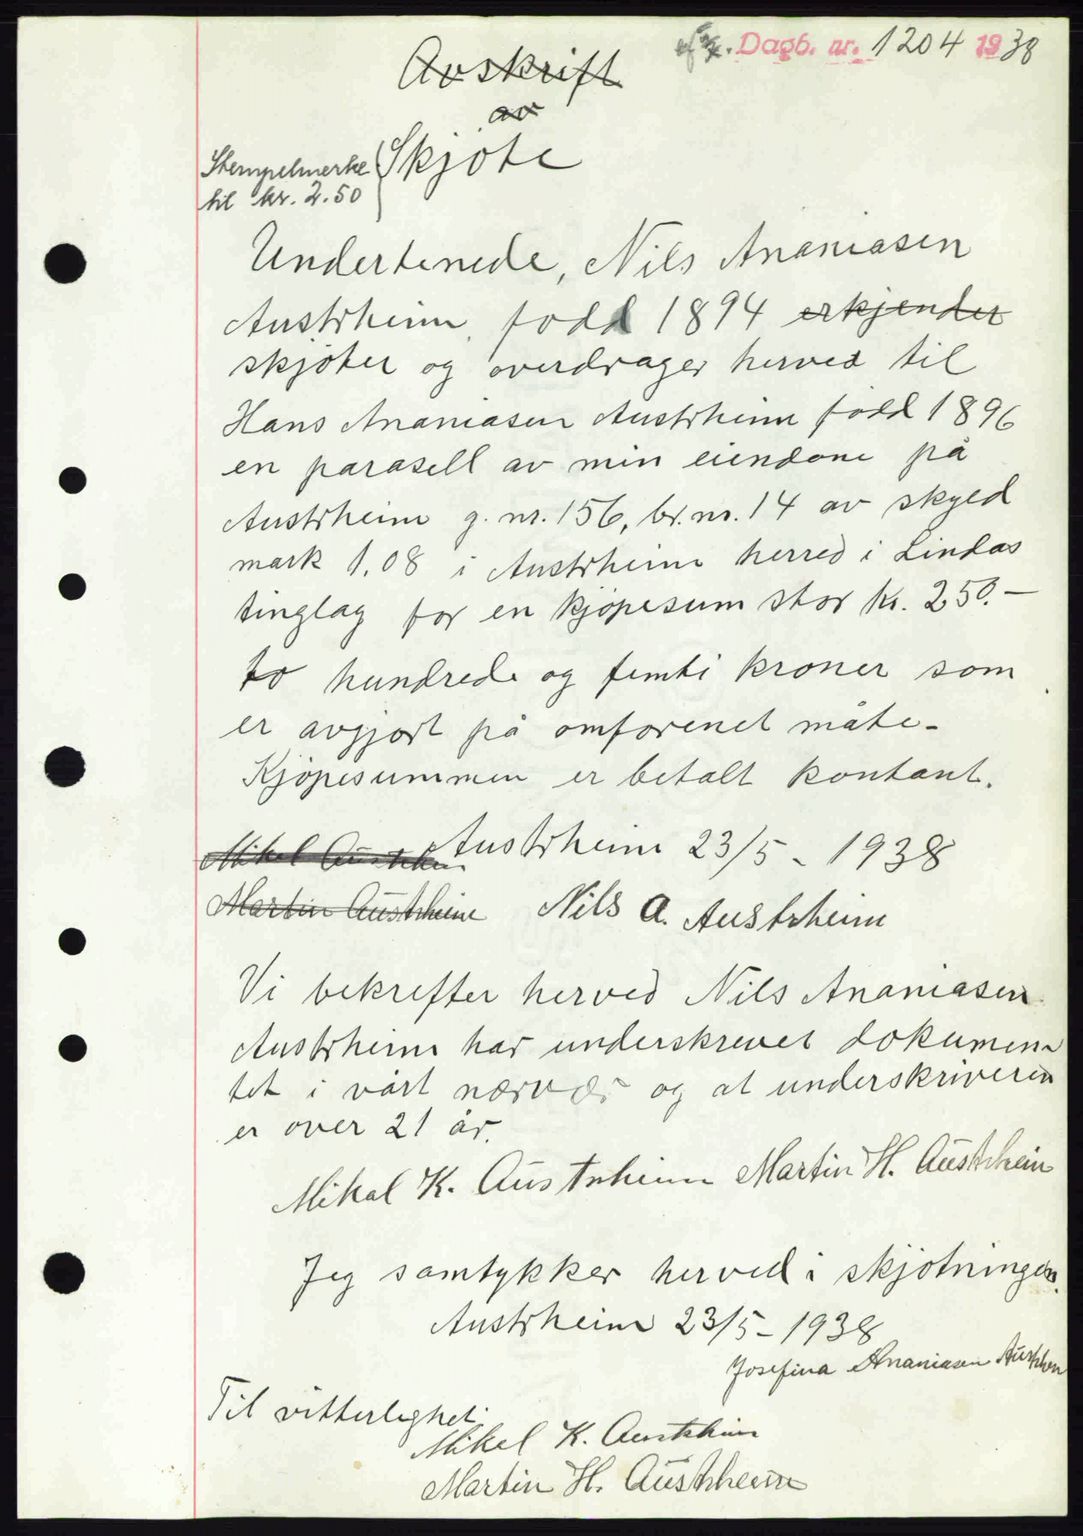 Dagb. nr. 1204 1938
Avskrift
av
Stempelmerke
til kr. 2.50
Skjøte
Undertenede, Nils Ananiasen
Austrheim, født 1894 erkjender
skjøter og overdrager herved til
Hans Ananiasen Austrheim født 1896
en parasell av min eiendom på
Austrheim g. nr. 156, br. nr. 14 av skyld
mark 1,08 i Austrheim herred i Lindås
tinglag for en kjøpesum stor kr. 250.-
to hundrede og femti kroner som
er avgjort på omforenet måte-
Kjøpesummen er betalt kontant.
Austrheim 23/5 - 1938
Mikal Austrheim
Martin Austrheim
Nils A. Austrheim
Vi bekrefter herved Nils Ananiasen
Austrheim har underskrevet dokumen-
tet i vårt nærvær og at underskriveren
er over 21 år.
Mikal K. Austrheim Martin H. Austrheim
Jeg samtykker herved i skjøtningen.
Austrheim 23/5 - 1938
Josefina Ananiasen
Til vitterlighet.
Mikal K. Austrheim
Martin H. Austrheim